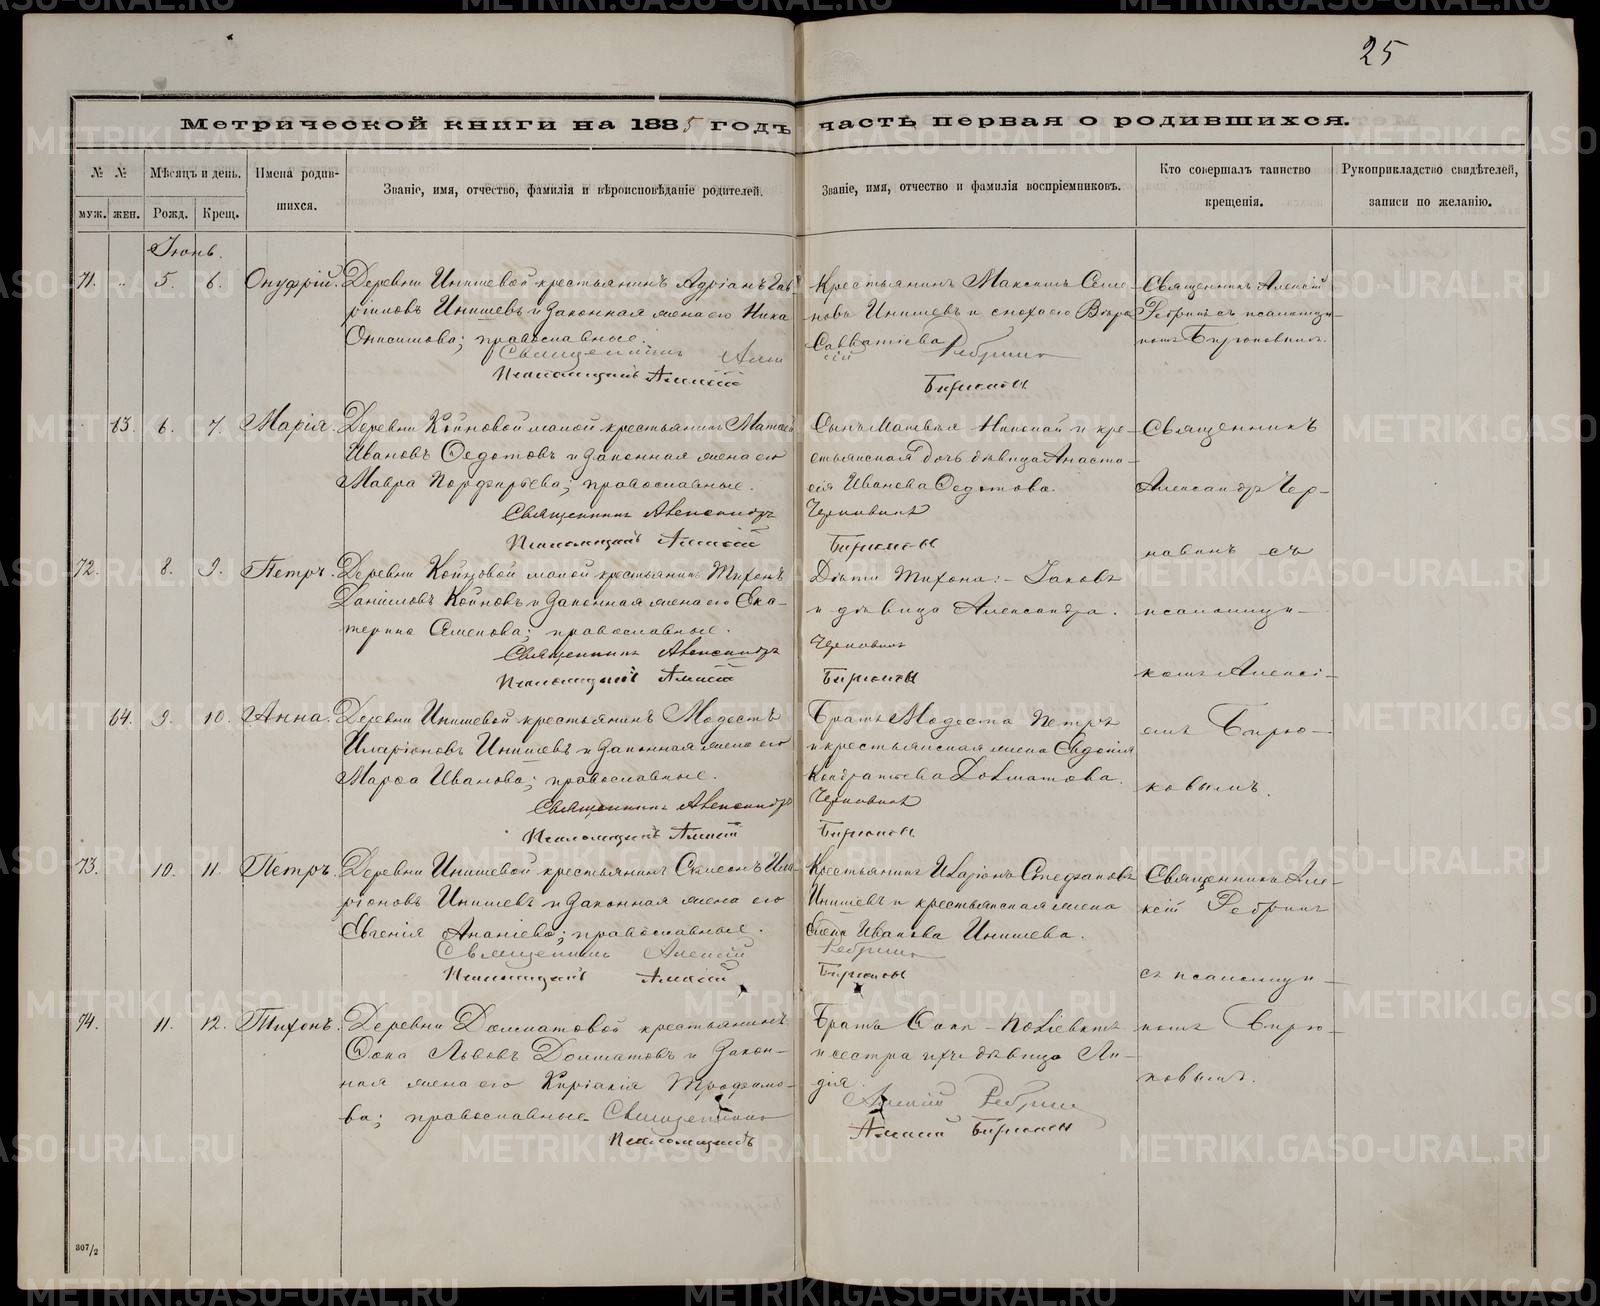 25
Метрической книги на 1885 годъ часть первая о родившихся.
№ № Мѣсяцъ и день. Имена родив-
шихся.
муж. жен. Рожд. Крещ.
Званіе, имя, отчество, фамилія и вѣроисповѣданіе родителей.
Званіе, имя, отчество и фамилія воспріемниковъ.
Кто совершалъ таинство
крещенія.
Рукоприкладство свидѣтелей,
записи по желанію.
Іюнь.
71. 5. 6. Онуфрій. Деревни Инишевой крестьянинъ Адріанъ Гав-
ріиловъ Инишевъ и законная жена его Ника
Онисимова; православные.
Священникъ
Псаломщикъ Алексій
Крестьянинъ Максимъ Семе-
новъ Инишевъ и сноха его Вѣра
Савватіева Ребринъ
Бирюковъ
Священникъ Алексій
Ребринъ съ псаломщи-
комъ Бирюковымъ.
63. 6. 7. Марія. Деревни Койновой малой крестьянинъ Матвей
Ивановъ Ѳедотовъ и законная жена его
Мавра Порфирьева; православные.
Священникъ Александръ
Псаломщикъ Алексій
Сынъ Матвѣя Николай и кре-
стьянская дочь дѣвица Анаста-
сія Иванова Ѳедотова.
Черновинъ
Бирюковъ
Священникъ
Александръ Чер-
72. 8. 9. Петръ. Деревни Койновой малой крестьянинъ Тихонъ
Даніиловъ Койновъ и законная жена его Ека-
терина Семенова; православные.
Священникъ Александръ
Псаломщикъ Алексій
Дѣти Тихона: - Іаковъ
и дѣвица Александра.
Бирюковъ
съ
псаломщи-
комъ Алексі-
64. 9. 10. Анна. Деревни Инишевой крестьянинъ Модестъ
Иларіоновъ Инишевъ и законная жена его
Марѳа Иванова; православные.
Священникъ Александръ
Псаломщикъ Алексій
Братъ Модеста Петръ
и крестьянская жена Евдокія
Кондратьева Долматова.
Бирюковъ
емъ Бирю-
ковымъ.
73. 10. 11. Петръ. Деревни Инишевой крестьянинъ Симеонъ Ила-
ріоновъ Инишевъ и законная жена его
Евгенія Ананіева; православные.
Священникъ Алексій
Псаломщикъ Алексій
Крестьянинъ Иларіонъ Стефановъ
Инишевъ и крестьянская жена
Елена Иванова Инишева.
Ребринъ
Бирюковъ
Священникъ Але-
ксій Ребринъ
съ псаломщи-
74. 11. 12. Тихонъ. Деревни Долматовой крестьянинъ
Ѳока Львовъ Долматовъ и закон-
ная жена его Киріакія Трофимо-
ва; православные. Священникъ
Псаломщикъ
Братъ Ѳоки - Поліевктъ
и сестра ихъ дѣвица Ли-
дія.
Алексій Ребринъ
Алексій Бирюковъ
комъ Бирю-
ковымъ.
307/2
METRIKI.GASO-URAL.RU